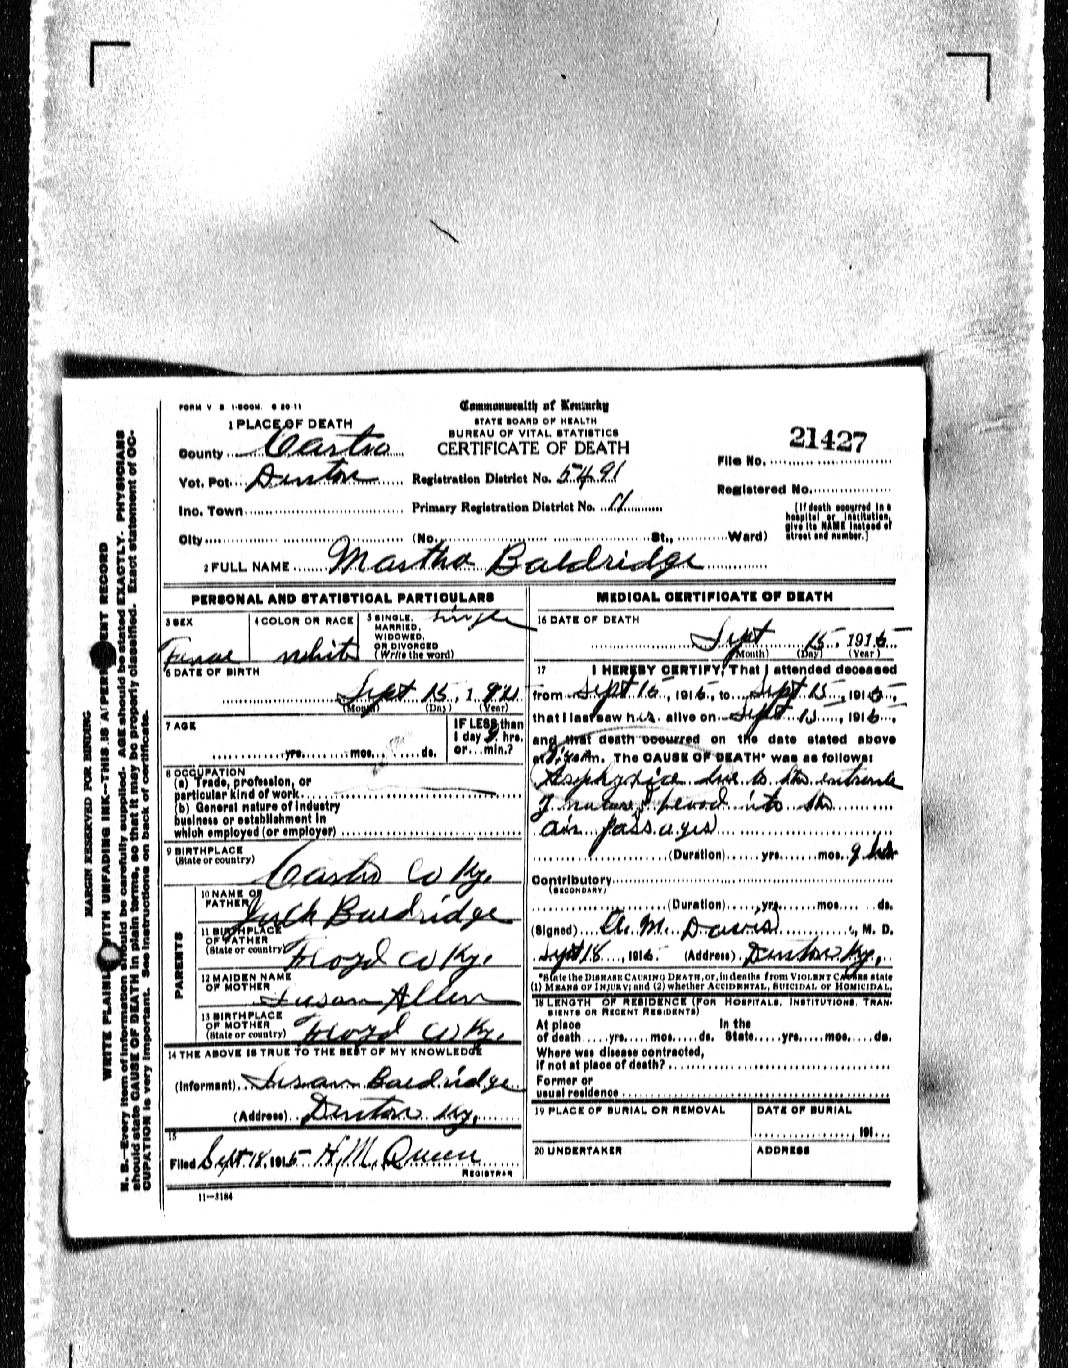 FORM V S 1-500M. 6 20-11
Commonwealth of Kentucky
STATE BOARD OF HEALTH
BUREAU OF VITAL STATISTICS
CERTIFICATE OF DEATH
1 PLACE OF DEATH
County Carter
Vot. Pot. Denton
Inc. Town
City
Registration District No. 5491
Primary Registration District No.
(No. St., Ward)
21427
File No.
Registered No.
[If death occurred in a
hospital or institution,
give its NAME instead of
street and number.]
2 FULL NAME Martha Baldridge
PERSONAL AND STATISTICAL PARTICULARS
3 SEX
Female
4 COLOR OR RACE
white
5 SINGLE,
MARRIED,
WIDOWED,
OR DIVORCED
(Write the word)
Single
6 DATE OF BIRTH
Sept 15, 1
(Month) (Day) (Year)
7 AGE
yrs. mos. ds.
IF LESS than
1 day 9 hrs.
or min.?
8 OCCUPATION
(a) Trade, profession, or
particular kind of work
(b) General nature of industry
business or establishment in
which employed (or employer)
9 BIRTHPLACE
(State or country)
Carter Co Ky.
PARENTS
10 NAME OF
FATHER
Baldridge
11 BIRTHPLACE
OF FATHER
(State or country)
Floyd Co Ky.
12 MAIDEN NAME
OF MOTHER
Susan Allen
13 BIRTHPLACE
OF MOTHER
(State or country)
Floyd Co Ky.
14 THE ABOVE IS TRUE TO THE BEST OF MY KNOWLEDGE
(Informant) Susan Baldridge
(Address) Denton Ky.
15
Filed Sept 18, 1915 H.M. Queen
REGISTRAR
11—3184
MEDICAL CERTIFICATE OF DEATH
16 DATE OF DEATH
Sept 15, 1915
(Month) (Day) (Year)
17 I HEREBY CERTIFY, That I attended deceased
from Sept 15, 1915, to Sept 15, 1915,
that I last saw h alive on Sept 15, 1915,
and that death occurred on the date stated above
at m. The CAUSE OF DEATH* was as follows:
Asphyxia due to the entrance
of mucus & blood into the
air passages
(Duration) yrs. mos. 9 hrs
Contributory
(SECONDARY)
(Duration) yrs. mos. ds.
(Signed) A. M. Davis, M. D.
Sept 18, 1915 (Address) Denton Ky.
*State the DISEASE CAUSING DEATH, or, in deaths from VIOLENT CAUSES state
(1) MEANS OF INJURY; and (2) whether ACCIDENTAL, SUICIDAL or HOMICIDAL.
18 LENGTH OF RESIDENCE (FOR HOSPITALS, INSTITUTIONS, TRAN-
SIENTS OR RECENT RESIDENTS)
At place In the
of death yrs. mos. ds. State yrs. mos. ds.
Where was disease contracted,
if not at place of death?
Former or
usual residence
19 PLACE OF BURIAL OR REMOVAL
DATE OF BURIAL
, 191
20 UNDERTAKER
ADDRESS
MARGIN RESERVED FOR BINDING
WRITE PLAINLY WITH UNFADING INK—THIS IS A PERMANENT RECORD
N. B.—Every item of information should be carefully supplied. AGE should be stated EXACTLY. PHYSICIANS
should state CAUSE OF DEATH in plain terms, so that it may be properly classified. Exact statement of OC-
CUPATION is very important. See instructions on back of certificate.